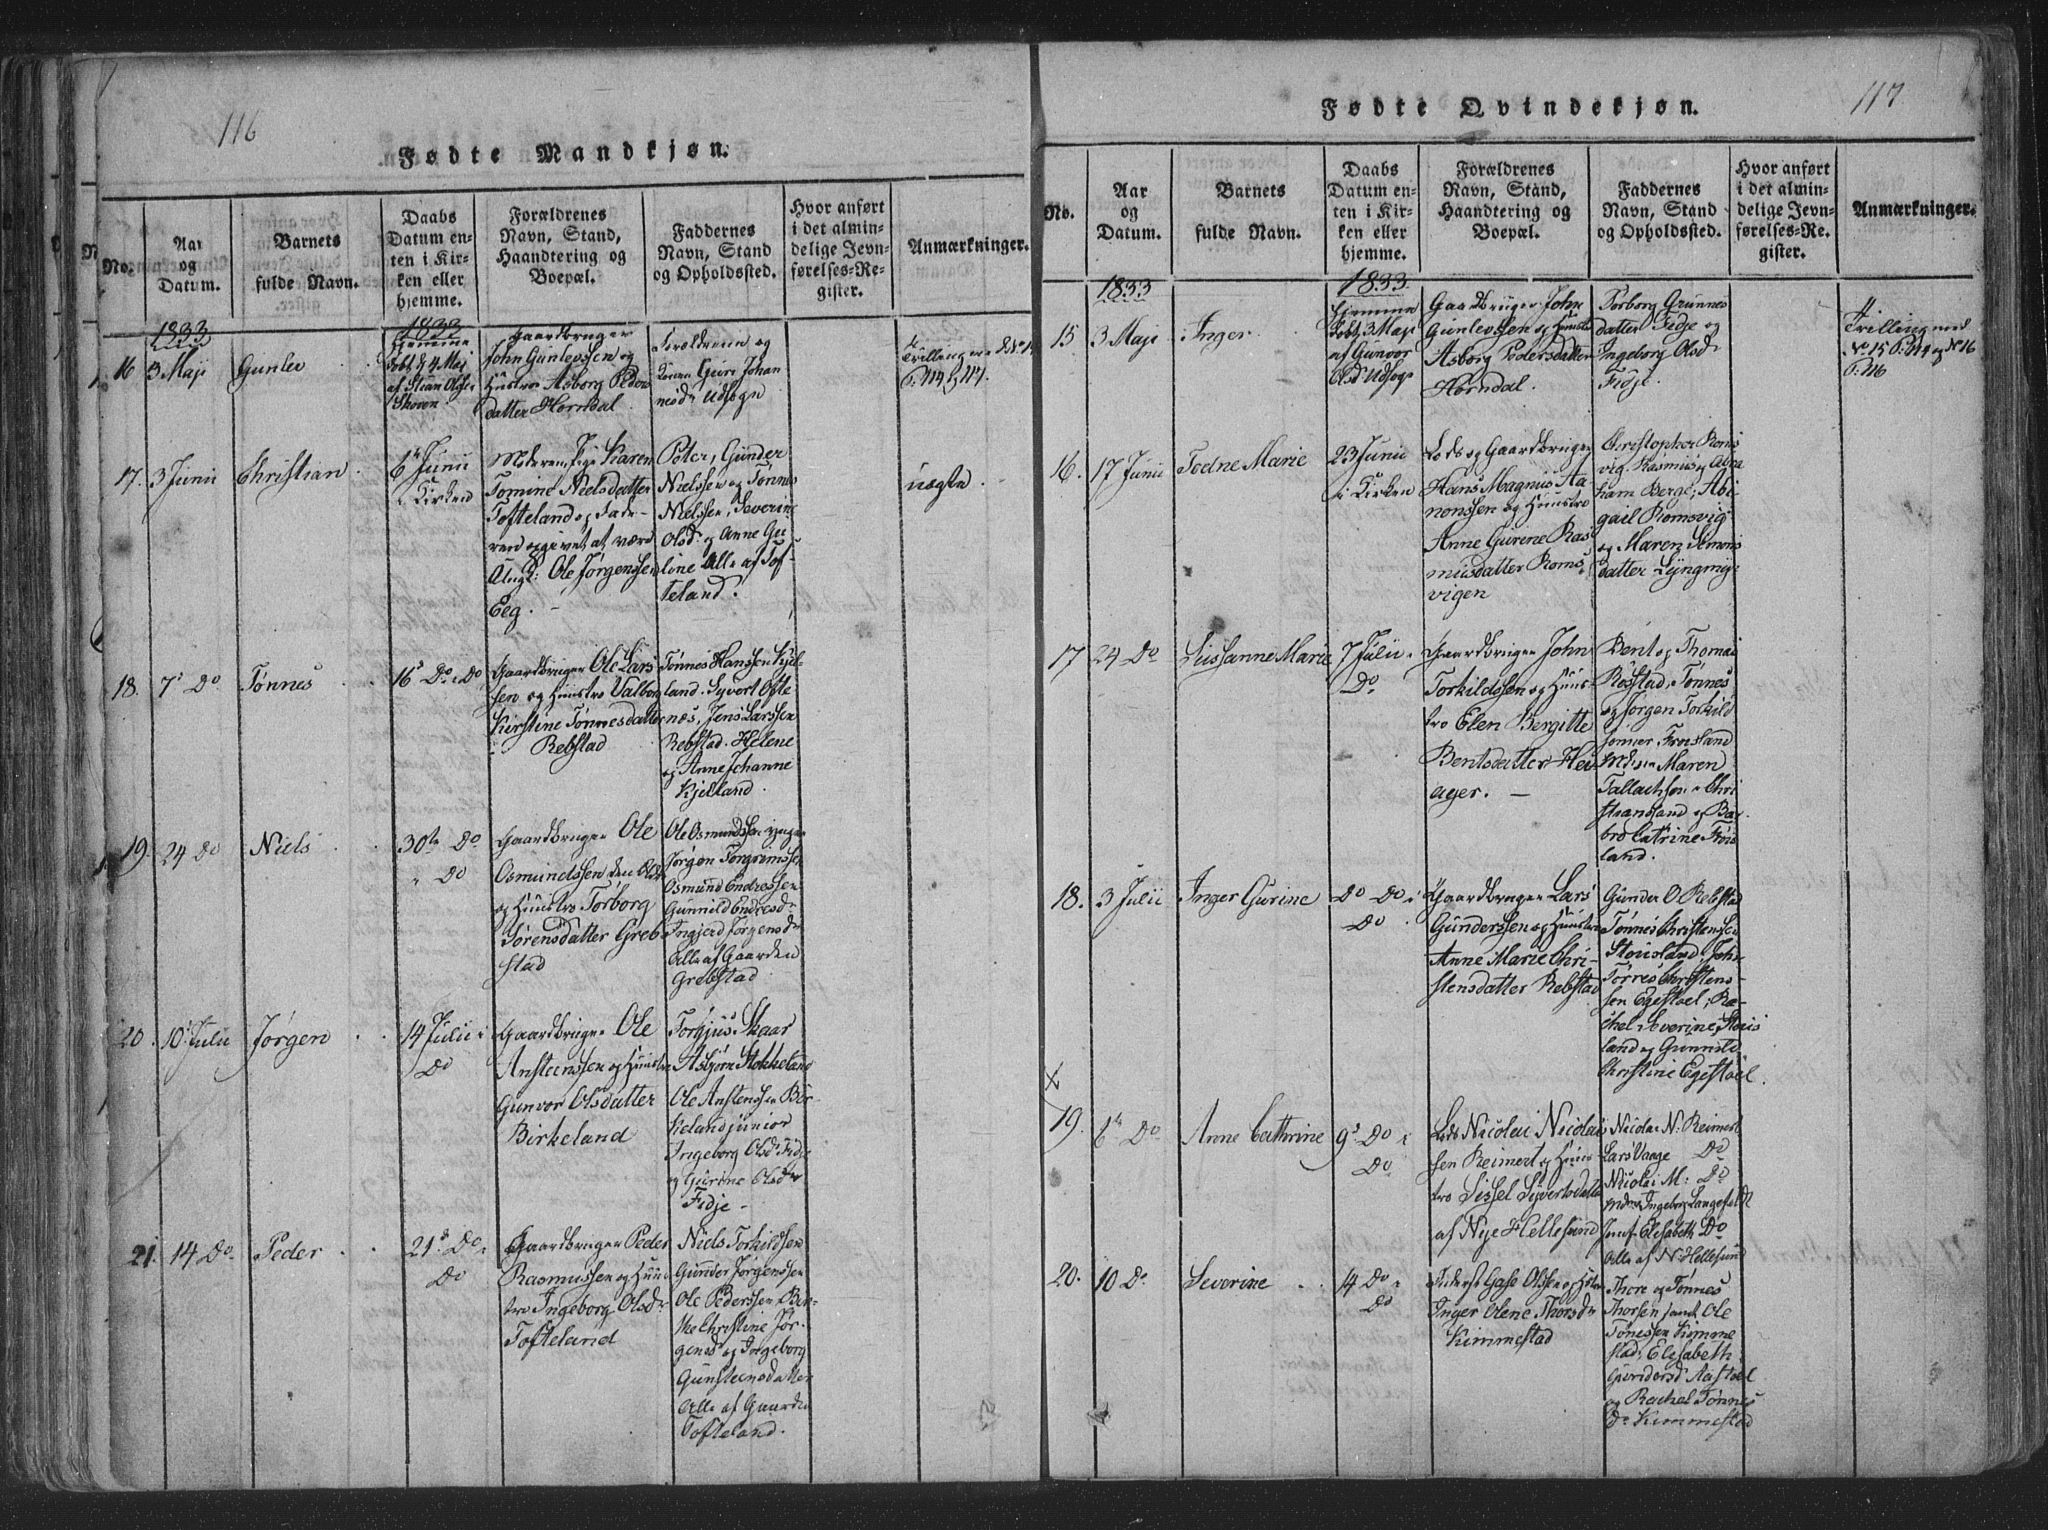 116
Fødte Mandkjøn.
No.
Aar
og
Datum.
Barnets
fulde Navn.
Daabs
Datum en-
ten i Kir-
ken eller
hjemme.
Forældrenes
Navn, Stand,
Haandtering og
Boepæl.
Faddernes
Navn, Stand
og Opholdssted.
Hvor anført
i det almin-
delige Jevn-
førelses-Re-
gister.
Anmærkninger.
1833
1833
16
3 Maji
Gunlev
hjemme
døbt d 4 Maj
af Stian Olsen
Skoven
Gaardbruger
John Gunlevssen og
Hustroe Asborg Peders
datter Horndal
Forældrene og
Konen Guri Johan
nesd. Udsogn
Trillinger
P. 114 & 117.
17.
3 Junii
Christian
6te Junii
i Kirken
Moderen, Pige Karen
Tomine Nielsdatter
Tofteland og Fade-
ren opgivet at være
Ungk: Ole Jørgenssen
Eeg.
Peter, Gunder
Nielssen og Tønnes
Nielssen, Severine
Olsd. og Anne Gu
line Alle af Tof-
teland.
uægte.
18.
7s Do
Tønnes
16s Do i Do
Gaardbruger Ole Lars
sen og Hustro Valborg
Kirstine Tønnesdatter
Rebstad
Tønnes Hanssen Kjel-
land. Syvert Ofte
næs, Jens Larssen
Rebstad. Helene
og Anne Johanne
Kjelland.
19.
24 Do
Niels
30te Do
" Do
Gaardbruger Ole
Osmundssen den Ældre
og Hustro Torborg
Sørensdatter Greb
stad
Ole Osmundssen yngre
Jørgen Torgrimssen
Osmund Endressen
Gunnild Endresd.
Ingjerd Jørgensd.
Alle af Gaarden
Grebstad
20.
10 Julii
Jørgen
14 Julii i
Do
Gaardbruger Ole
Anstenssen og Hustro
Gunvor Olsdatter
Birkeland
Torkjus Skaar
Asbjørn Stokkeland
Ole Anstenssen Bir-
keland junior
Ingeborg Olsd. Fidje
og Gurine Olsd.
Fidje
21.
14 Do
Peder
21s Do i
Do
Gaardbruger Peder
Rasmussen og Hus
tro Ingeborg Olsdr
Tofteland
Niels Torkildsen
Gunder Jørgenssen
Ole Pederssen Ben-
the Christine Jør-
gensd og Ingeborg
Gunsteensdatter
Alle af Gaarden
Tofteland.
117
Fødte Qvindekjøn.
No.
Aar
og
Datum.
Barnets
fulde Navn.
Daabs
Datum en-
ten i Kir-
ken eller
hjemme.
Forældrenes
Navn, Stand,
Haandtering og
Boepæl.
Faddernes
Navn, Stand
og Opholdssted.
Hvor anført
i det almin-
delige Jevn-
førelses-Re-
gister.
Anmærkninger.
1833
1833
15
3 Maji
Inger
hjemme
døbt, 3 Maji
af Gunvor
Olsd Udsogn
Gaardbruger John
Gunlevssen og Hustro
Asborg Pedersdatter
Horndal.
Torborg Grunnes
datter Fidje og
Ingeborg Olsd
Fidje.
Trilling med
No 15 P. 114 og No 16
P: 116
16.
17 Junii
Todne Marie
23 Junii
i Kirken
Lods og Gaardbruger
Hans Magnus Aa
nonssen og Hustro
Anne Gurine Ras
musdatter Roms
vigen
Christopher Roms
vig. Rasmus og Abra
ham Berge, Abi
gail Romsvig
og Maren Simons
datter Lyngmyr
17
24 Do
Sussanne Marie
7 Julii i
Do
Gaardbruger John
Torkildssen og Hus-
tro Elen Bergitte
Bentsdatter Hei
ager. —
Bent og Thomas
Røsstad, Tønnes
og Jørgen Torkild
sønner, Frøisland
Maren
Tallachsen Chri
stiansand og Bar
bro Catrine Frøis
land.
18.
3 Julii
Inger Gurine
Do Do i
Do
Gaardbruger Lars
Gunderssen og Hustro
Anne Marie Chri-
stensdatter Rebstad
Gunder O Rebstad
Tønnes Christenssen
Stousland, John
Torres Christens-
sen Egestøel, Ra-
chel Severine Stous
land og Gunnild
Christine Egestøel.
19.
6te Do
Anne Cathrine
9s Do i
Do
Lods Nicolai Nicolai
sen Reimert og Hus
tro Sissel Syvertsdatter
af Nye Hellesund
Nicolai N: Reimert
Lars Vaage Do
Nicolai M: Do
Ingeborg Langefeldt
Jomf. Elisabeth Do
Alle af N: Hellesund
20.
10 Do
Severine
14 Do i
Do
Olssen og Hustro
Inger Olene Thorsdr
Kimmestad
Thore og Tønnes
Thorsen samt Ole
Tønessen Kimme
stad, Elisabeth
Gundersd Aastøel
og Rachel Tønnes
Dr Kimmestad